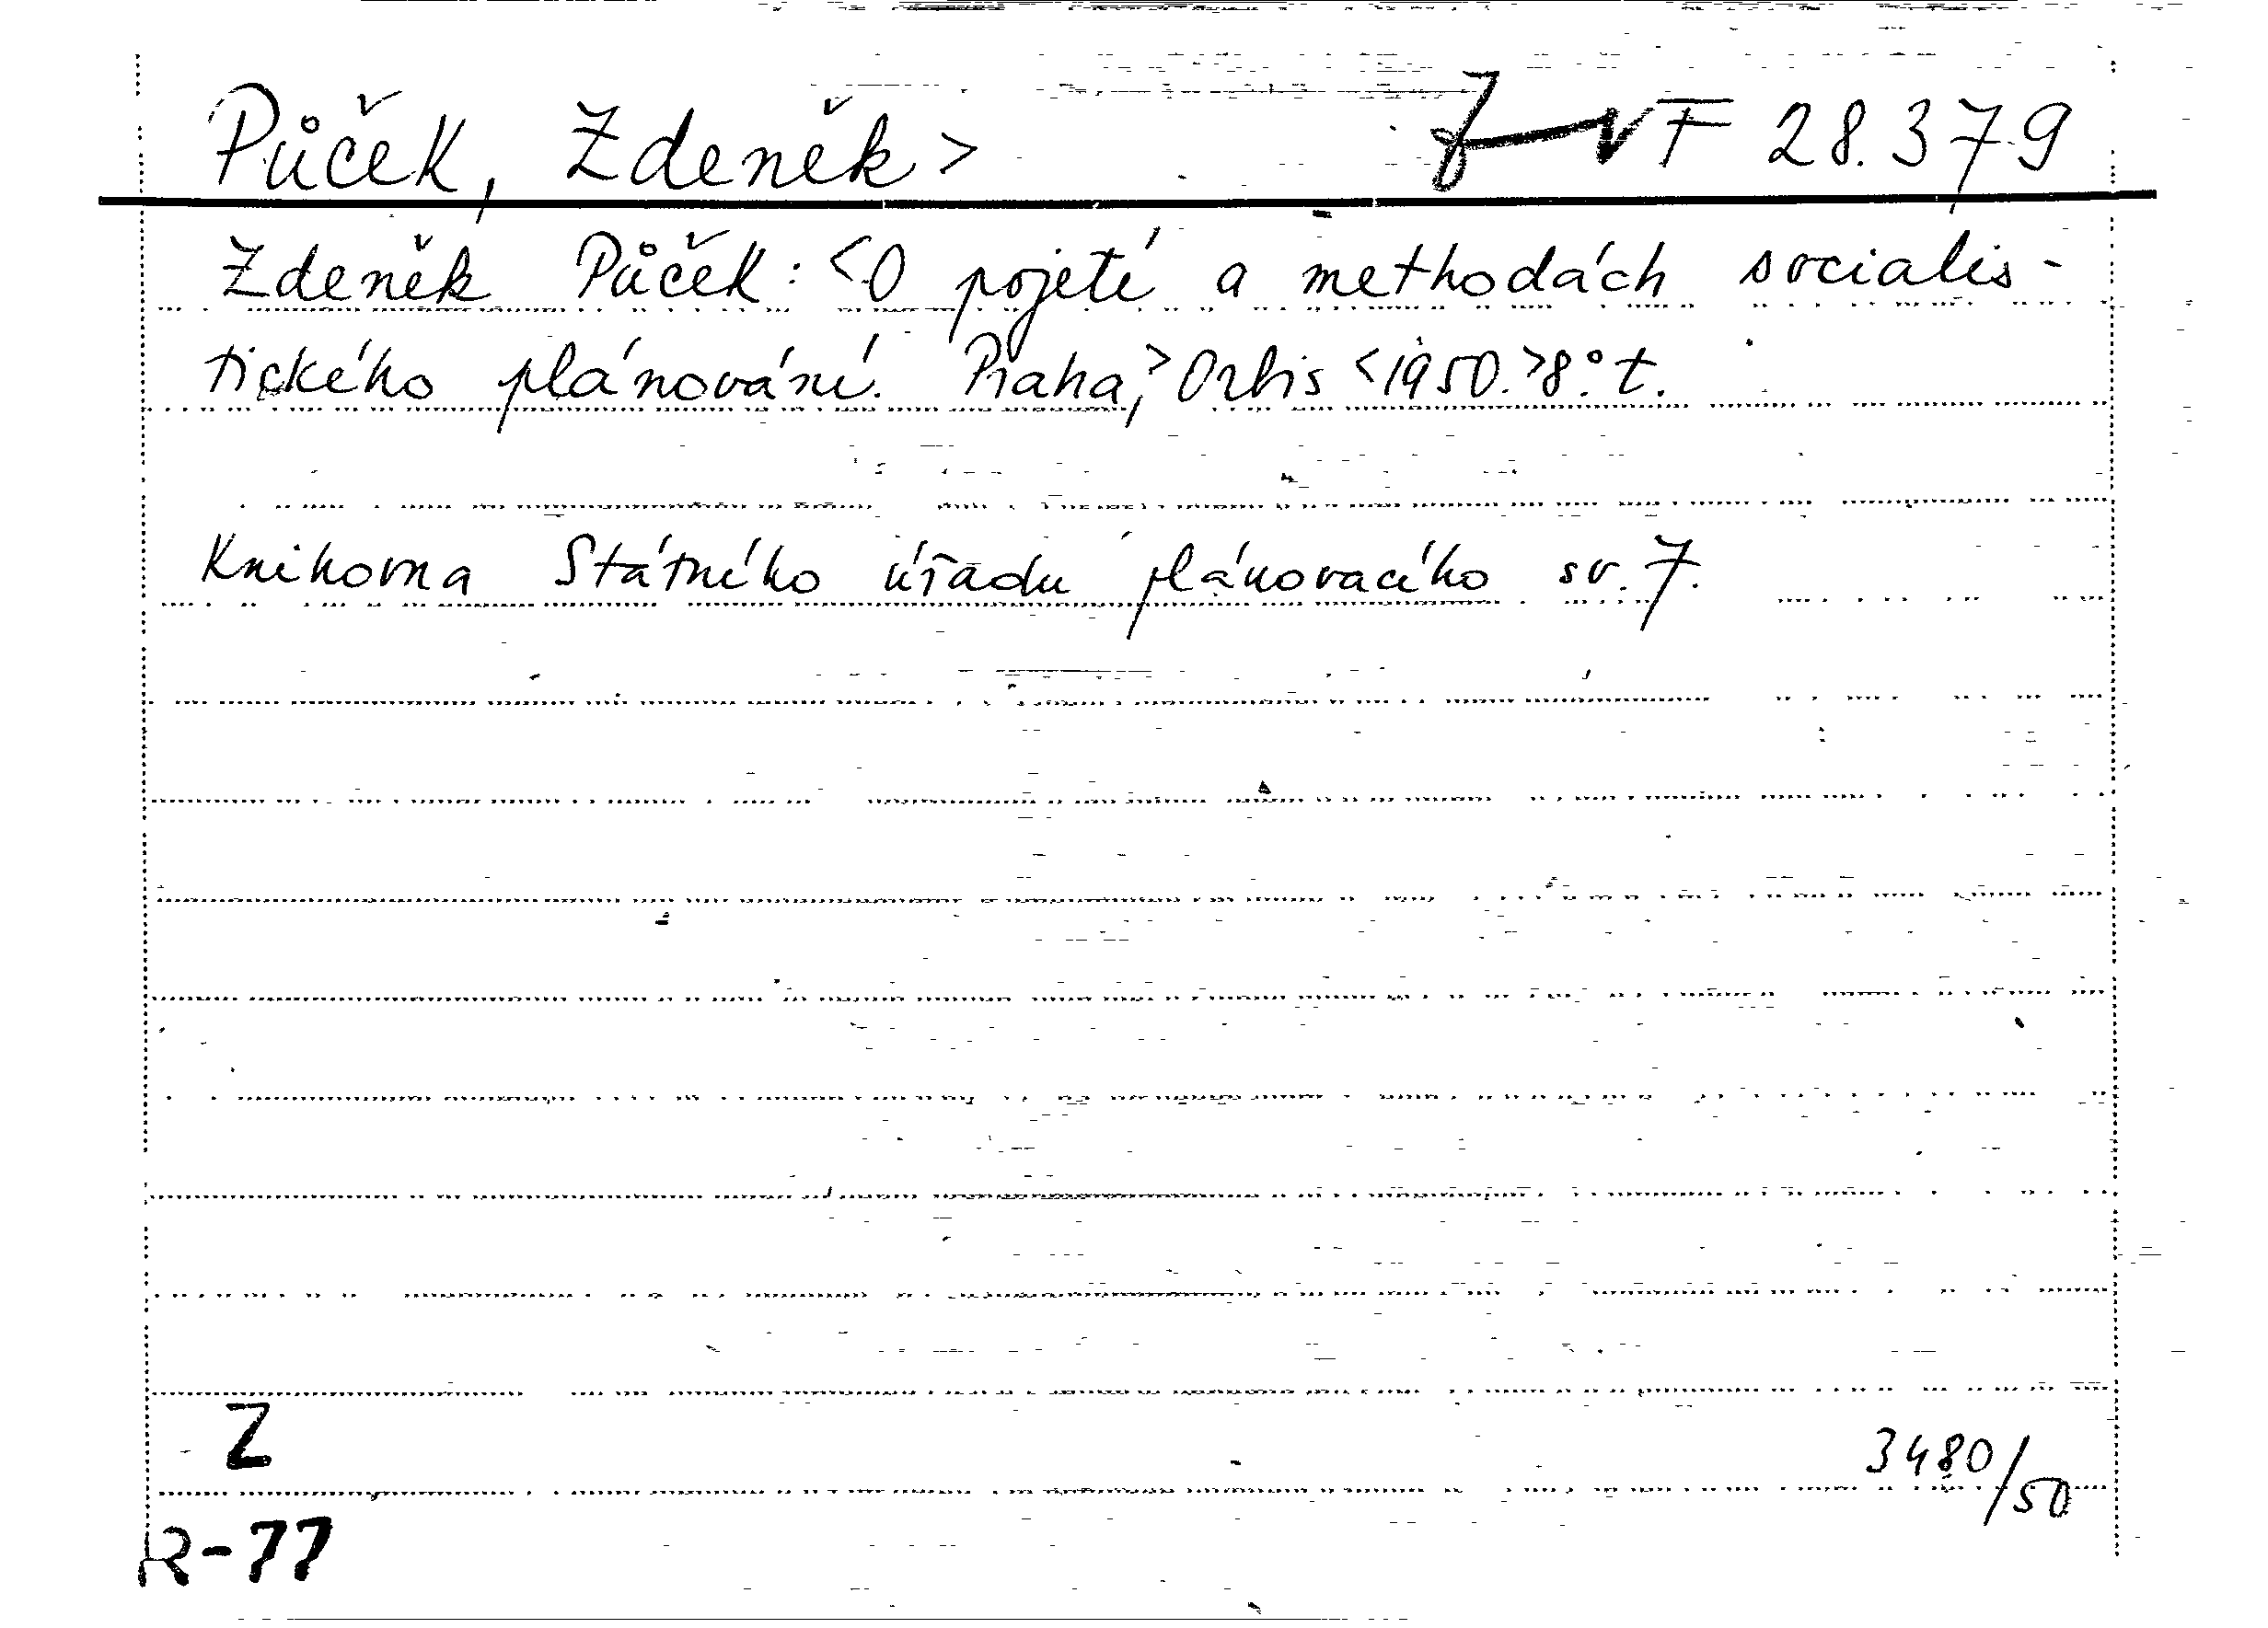 Půček, Zdeněk> F 28.379
Zdeněk Půček: <O pojetí a methodách socialis-
tického plánování. Praha,> Orbis <1950.> 8°. t.
Knihovna Státního úřadu plánovacího sv. 7.
Z
3480/50
R-77